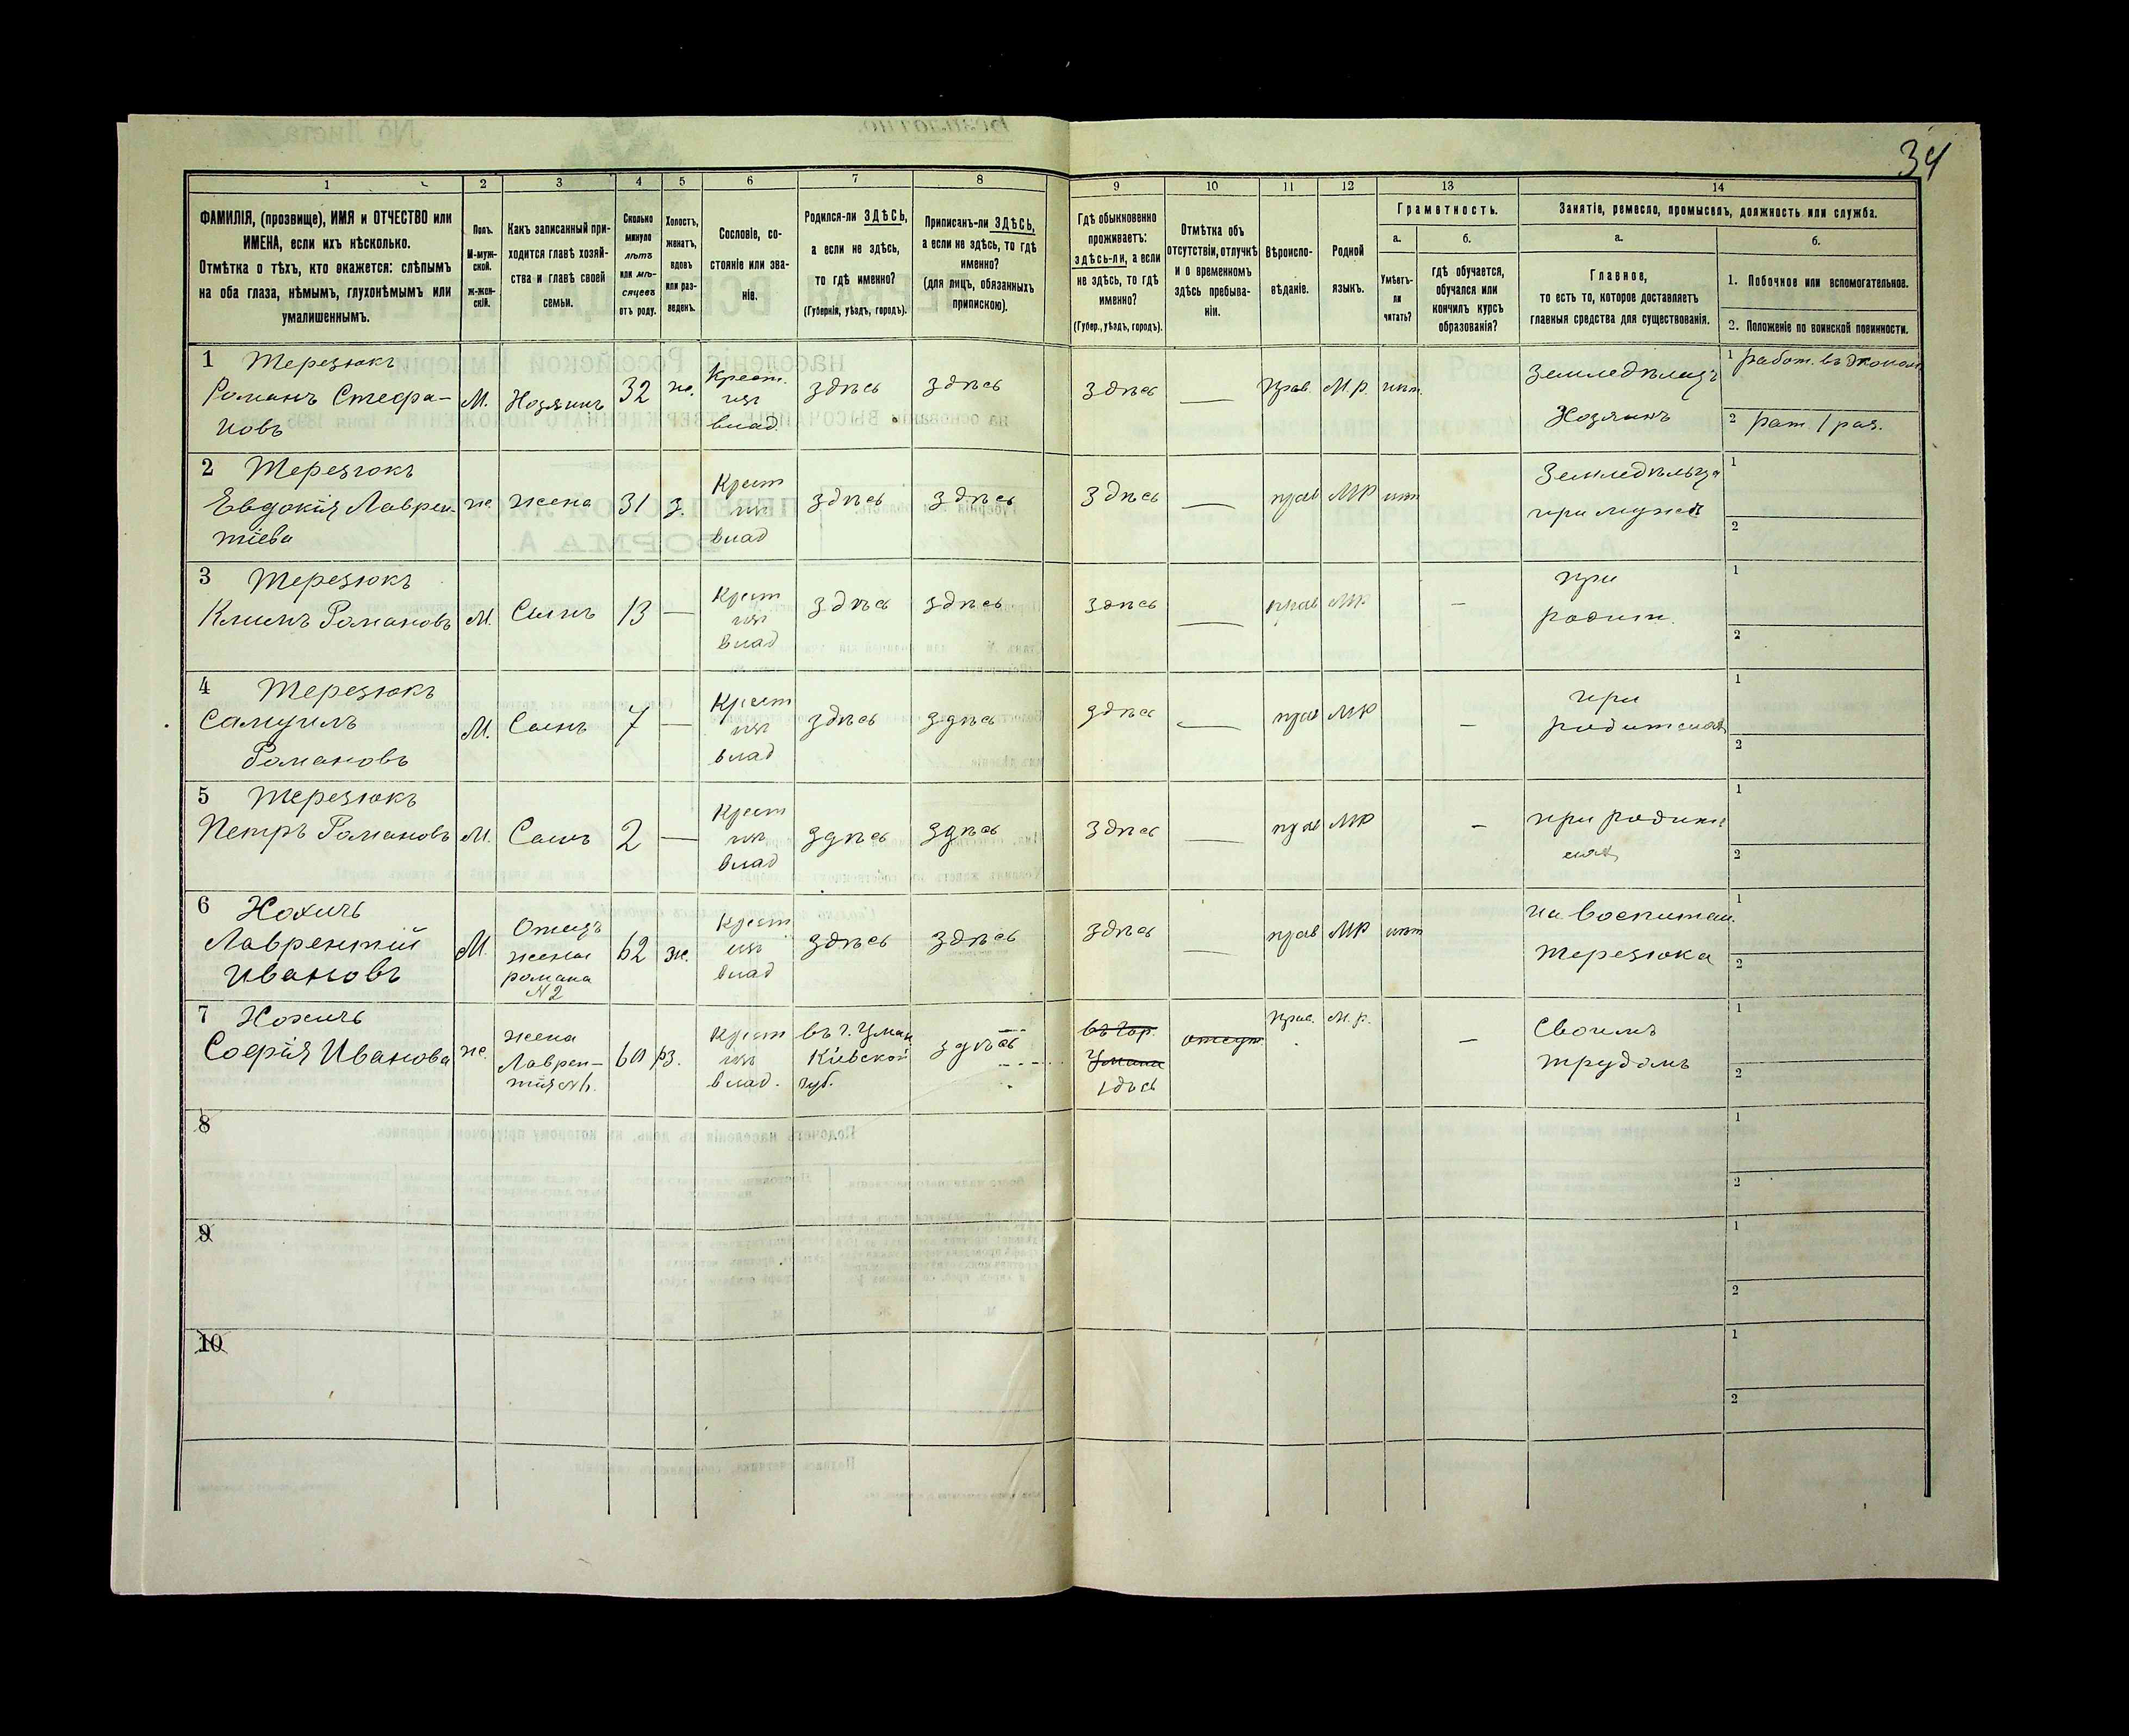 34
1 2 3 4 5 6 7 8 9 10 11 12 13 14
ФАМИЛІЯ, (прозвище), ИМЯ и ОТЧЕСТВО или
ИМЕНА, если ихъ нѣсколько.
Отмѣтка о тѣхъ, кто окажется: слѣпымъ
на оба глаза, нѣмымъ, глухонѣмымъ или
умалишеннымъ.
Полъ.
М-муж-
ской.
ж-жен-
скій.
Какъ записанный при-
ходится главѣ хозяй-
ства и главѣ своей
семьи.
Сколько
минуло
лѣтъ
или мѣ-
сяцевъ
отъ роду.
Холостъ,
женатъ,
вдовъ
или раз-
веденъ.
Сословіе, со-
стояніе или зва-
ніе.
Родился-ли ЗДѢСЬ,
а если не здѣсь,
то гдѣ именно?
(Губернія, уѣздъ, городъ).
Приписанъ-ли ЗДѢСЬ,
а если не здѣсь, то гдѣ
именно?
(для лицъ, обязанныхъ
припискою).
Гдѣ обыкновенно
проживаетъ:
здѣсь-ли, а если
не здѣсь, то гдѣ
именно?
(Губер., уѣздъ, городъ).
Отмѣтка объ
отсутствіи, отлучкѣ
и о временномъ
здѣсь пребыва-
ніи.
Вѣроиспо-
вѣданіе.
Родной
языкъ.
Грамотность.
а.
Умѣетъ-
ли
читать?
б.
гдѣ обучается,
обучался или
кончилъ курсъ
образованія?
Занятіе, ремесло, промыселъ, должность или служба.
а.
Главное,
то есть то, которое доставляетъ
главныя средства для существованія.
б.
1. Побочное или вспомогательное.
2. Положеніе по воинской повинности.
1 Терезюкъ
Романъ Стефа-
новъ
М. Хозяинъ 32 ж.
Крест.
изъ
влад.
здѣсь здѣсь здѣсь — Прав. М.р. нѣт.
Земледѣлецъ
Хозяинъ
1 работ. въ эконом
2 рат. 1 раз.
2 Терезюкъ
Евдокія Лаврен-
тіева
ж. жена 31 з.
Крест
изъ
влад
здѣсь здѣсь здѣсь — прав МР нѣт
Земледѣльца
при мужѣ
1
2
3 Терезюкъ
Климъ Романовъ
М. Сынъ 13 —
Крест
изъ
влад
здѣсь здѣсь здѣсь — прав МР —
при
родит.
1
2
4 Терезюкъ
Самуилъ
Романовъ
М. Сынъ 7 —
Крест
изъ
влад
здѣсь здѣсь здѣсь — прав МР —
при
родителях
1
2
5 Терезюкъ
Петръ Романовъ
М. Сынъ 2 —
Крест
изъ
влад
здѣсь здѣсь здѣсь — прав МР —
при родите
лях
1
2
6
Лаврентій
Ивановъ
М.
Отецъ
жены
романа
№ 2
62 ж.
Крест
изъ
влад
здѣсь здѣсь здѣсь — прав МР нѣт
на воспитан.
Терезюка
1
2
7
Софія Иванова
ж.
жена
Лаврен-
тія № 6.
60
Крест
изъ
влад.
въ г. Уман
Кіевской
губ.
здѣсь
въ гор.
Умани
здѣсь
отсут.
Прав. М.р. —
Своимъ
трудомъ
1
2
8
1
2
9
1
2
10
1
2